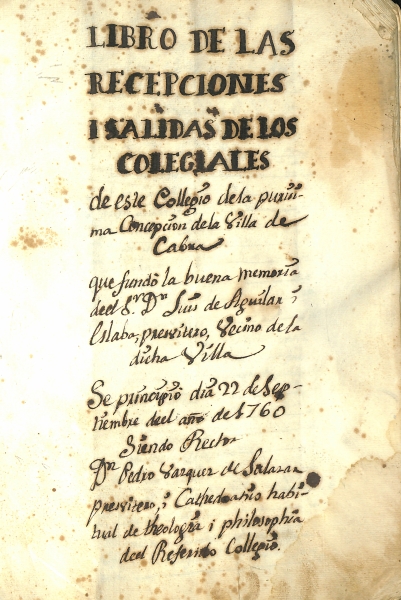 LIBRO DE LAS
RECEPCIONES
I SALIDAS DE LOS
COLEGIALES
de este Collegio de la purissi-
ma Concepcion de la Villa de
Cabra
que fundò la buena memoria
deel Sr. Dn. Luis de Aguilar i
Eslaba, presvitero, Vecino de la
dicha Villa
Se principiò dia 22 de Sep-
tiembre deel año de 1760
Siendo Rector
Dn. Pedro Vazquez de Salazar
presvitero, i Cathedratico habi-
tual de theologia i philosophia
deel Referido Collegio.